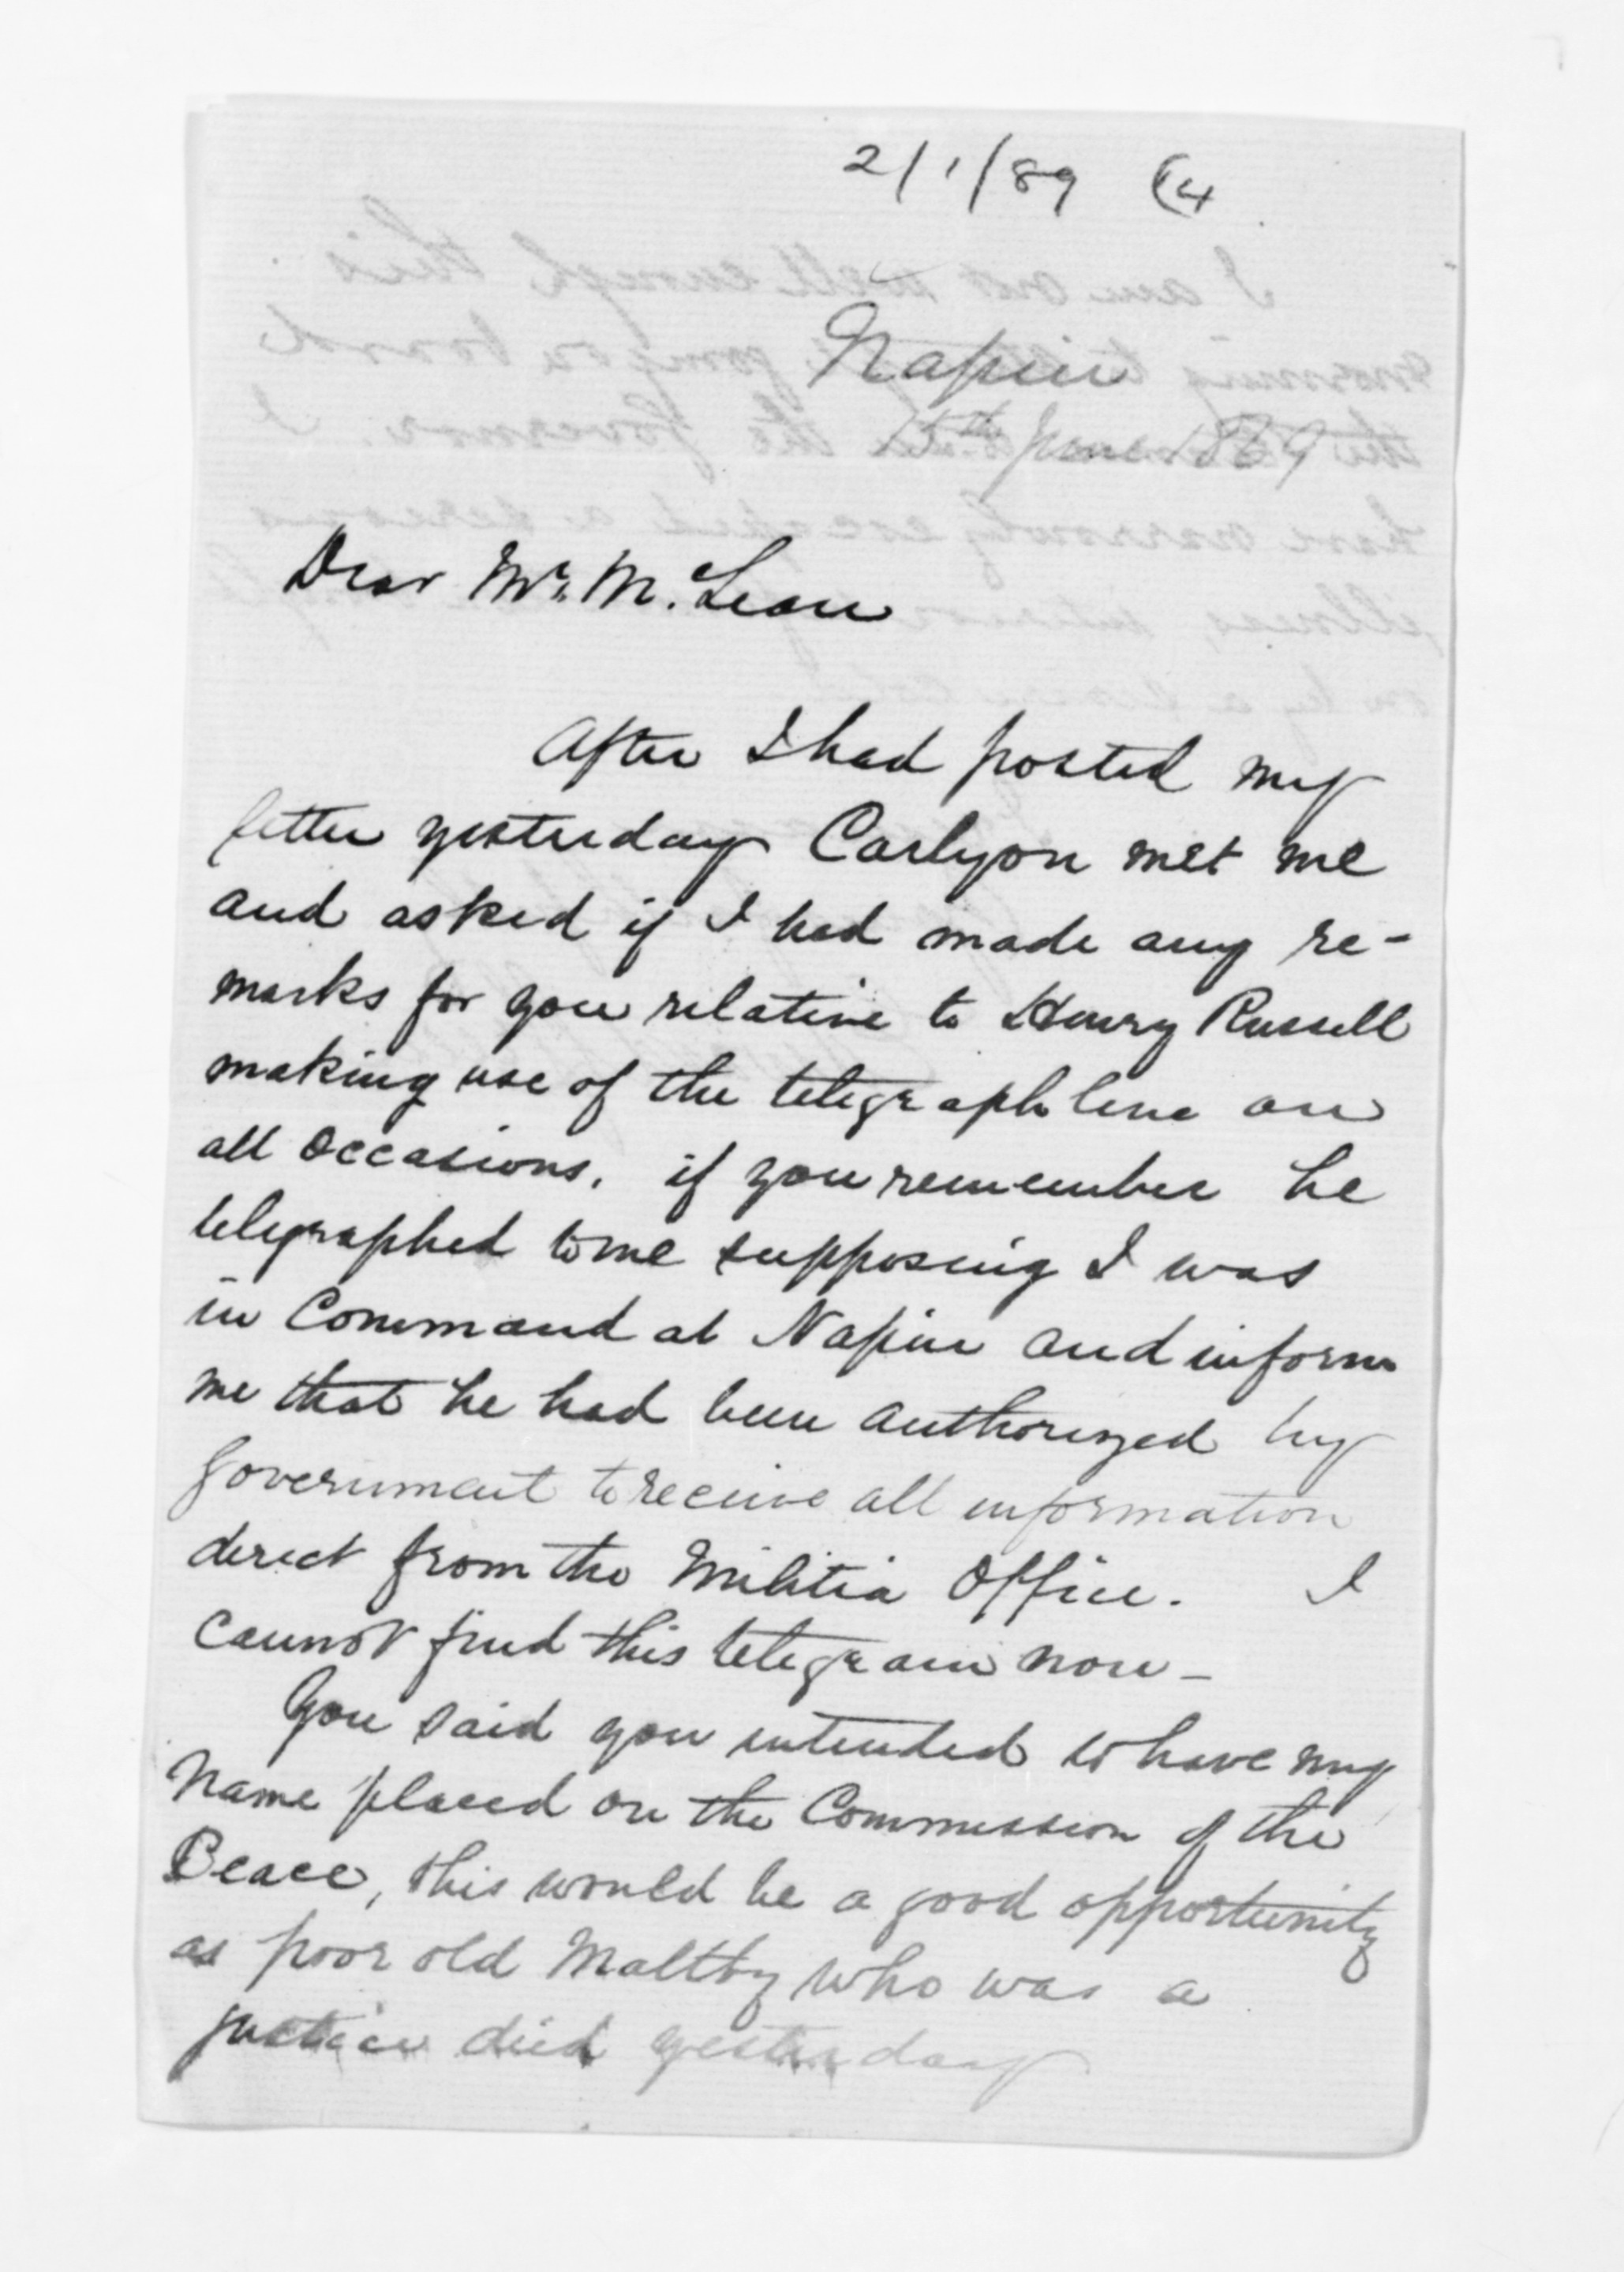 2/1/89 (4
Napier
15th June 1869
Dear Mr. McLean
After I had posted my
letter yesterday Carlyon met me
and asked if I had made any re-
marks for you relative to Henry Russell
making use of the telegraph line on
all occasions, if you remember he
telegraphed to me supposing I was
in Command at Napier and inform
me that he had been authorized by
Government to receive all information
direct from the Militia Office. I
cannot find this telegram now -
You said you intended to have my
name placed on the Commission of the
Peace, this would be a good opportunity
as poor old Maltby who was a
justice died yesterday